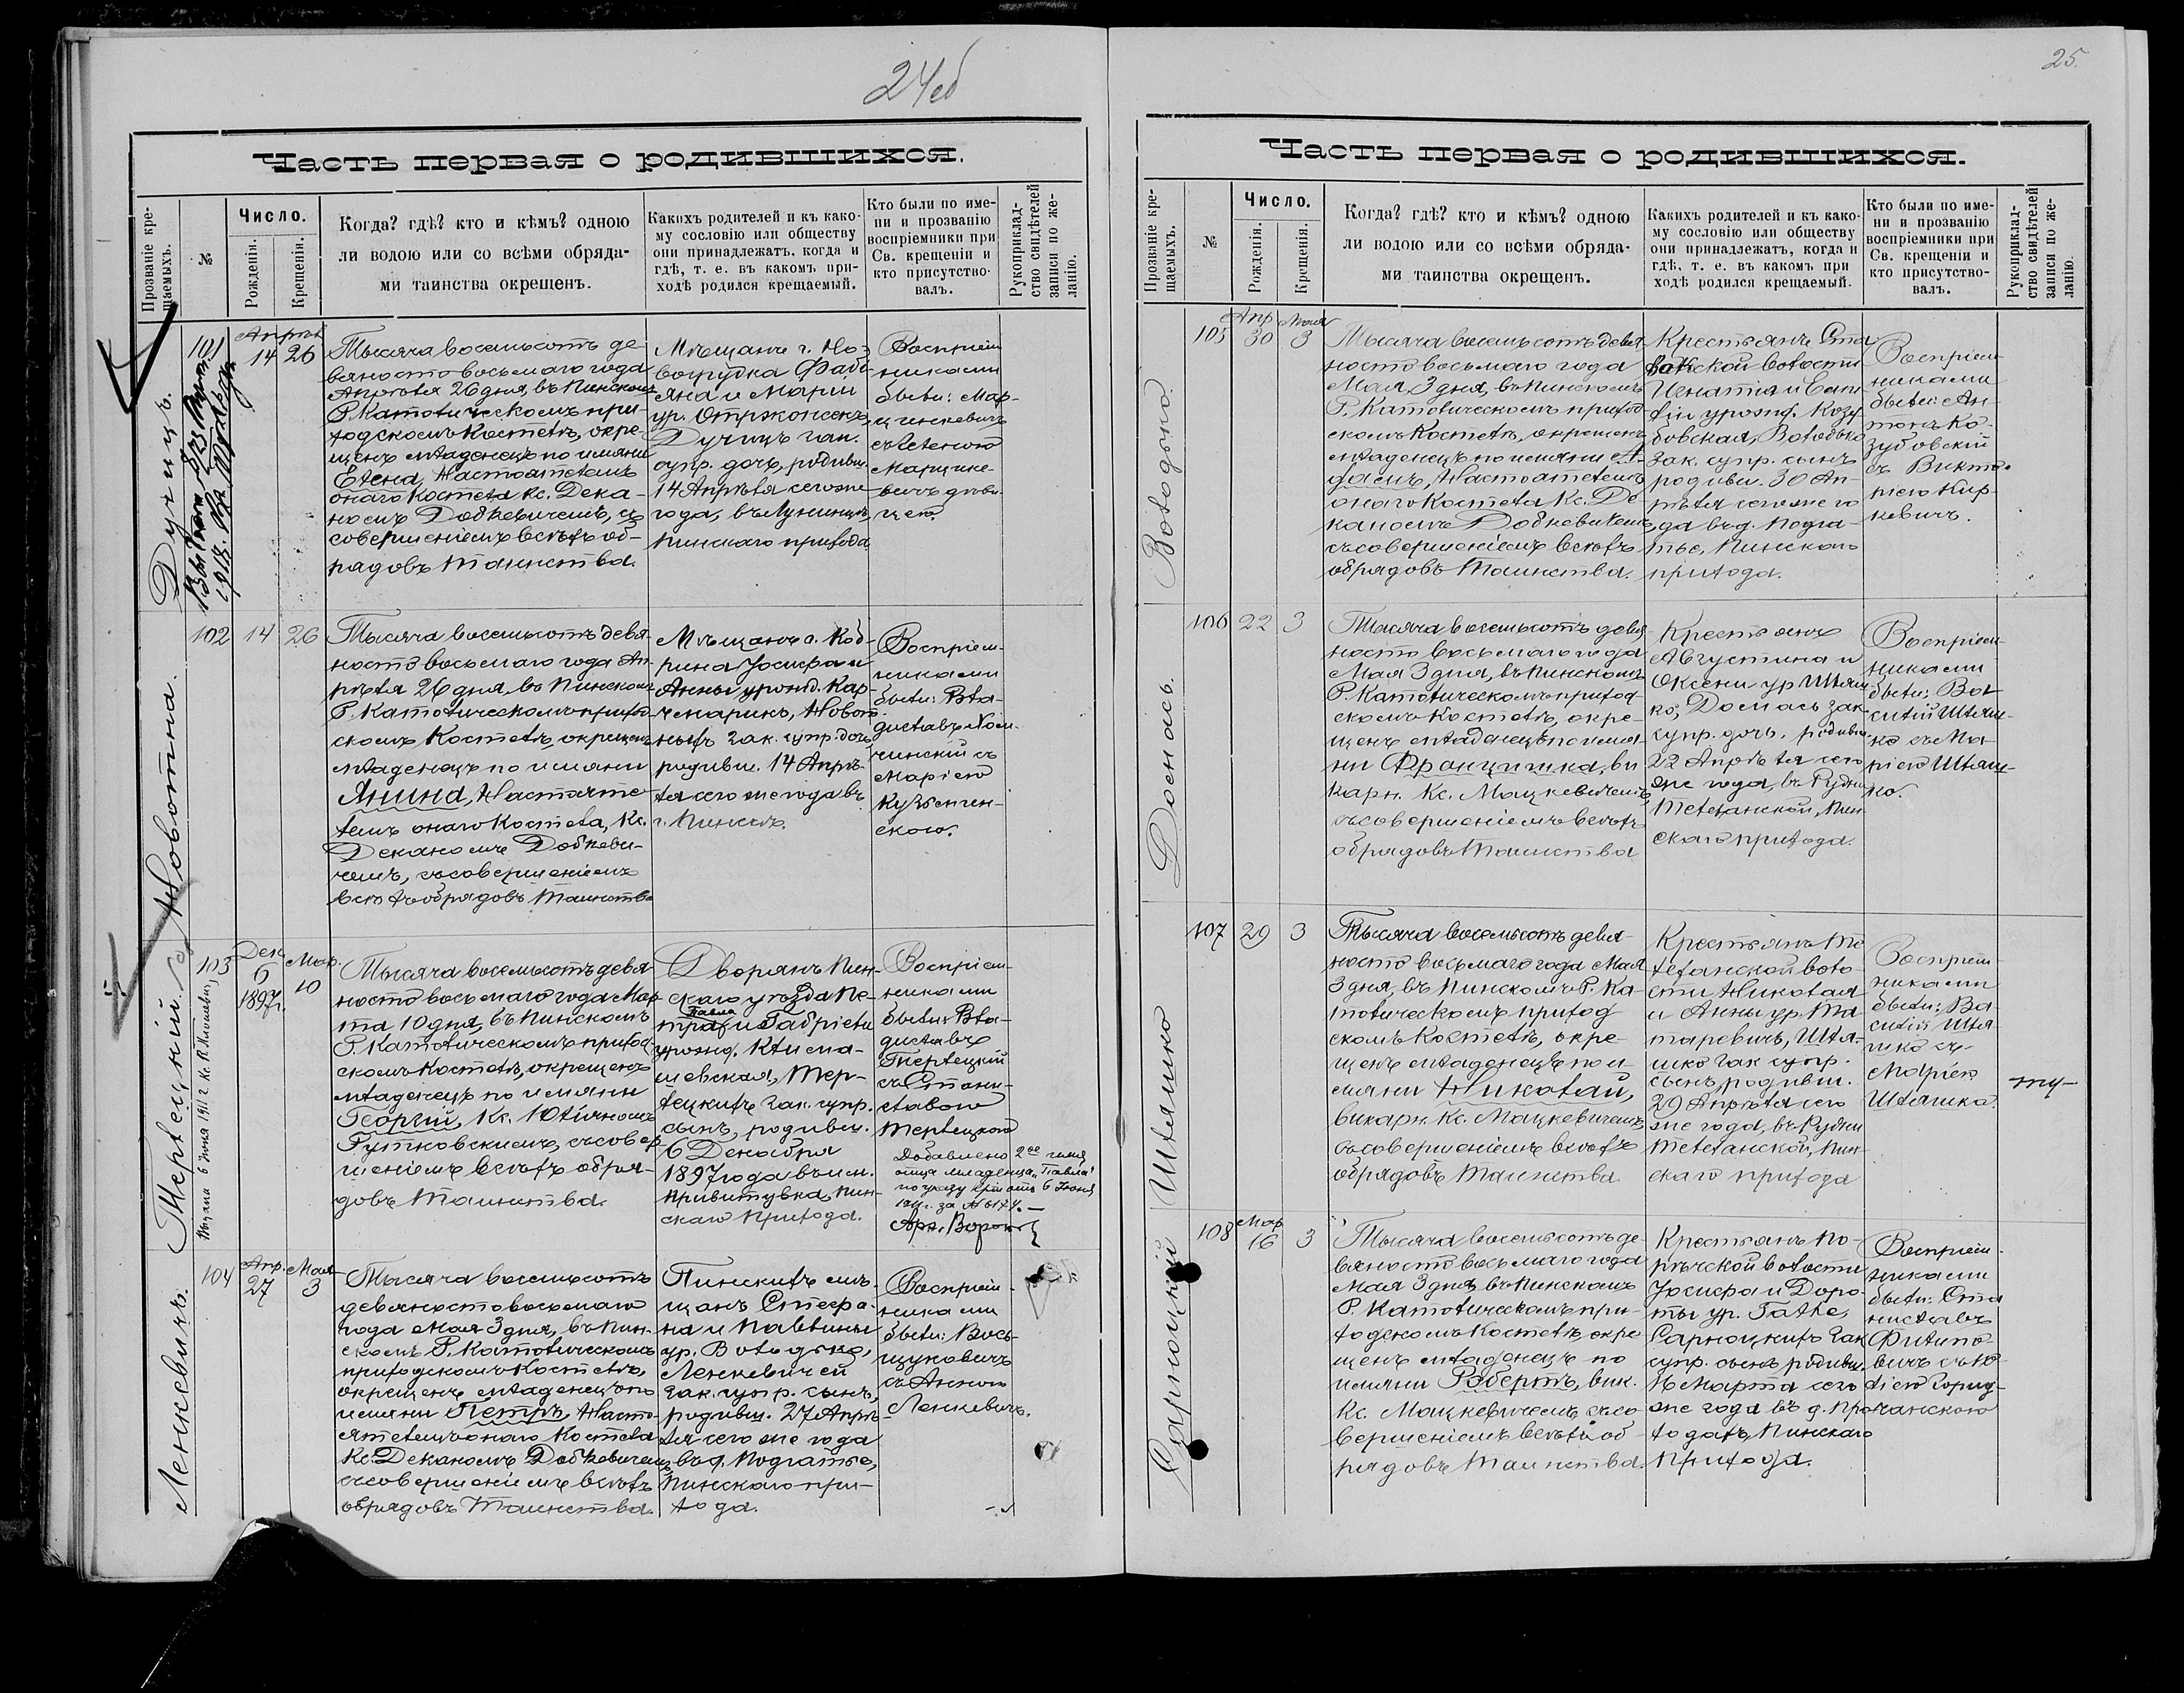 24об
Часть первая о родившихся.
Прозваніе кре-
щаемыхъ.
№
Число.
Рожденія.
Крещенія.
Когда? гдѣ? кто и кѣмъ? одною
ли водою или со всѣми обряда-
ми таинства окрещенъ.
Какихъ родителей и къ како-
му сословію или обществу
они принадлежатъ, когда и
гдѣ, т. е. въ какомъ при-
ходѣ родился крещаемый.
Кто были по име-
ни и прозванію
воспріемники при
Св. крещеніи и
кто присутство-
валъ.
Рукоприклад-
ство свидѣтелей
записи по же-
ланію.
Дучицъ.
101
Апрѣл
14 26
Тысяча восемьсотъ де-
вяносто восьмаго года
Апрѣля 26 дня, въ Пинскомъ
Р. Католическомъ при-
ходскомъ Костелѣ, окре-
щенъ младенецъ по имяни
Елена, Настоятелемъ
онаго Костела кс. Дека-
номъ Добкевичемъ, съ
совершеніемъ всѣхъ об-
рядовъ Таинства.
Мѣщанъ г. Но-
вогрудка Фаби-
яна и Маріи
ур. Отржонсекъ,
Дучицъ зак.
супр. дочь, родивш.
14 Апрѣля сего же
года, въ Лунинцѣ,
Пинскаго прихода
Воспріем
никами
были: Мар-
цинкевичъ
съ Еленою
Марцинке-
вичъ дѣви-
цею.
Новотна.
102 14 26
Тысяча восемьсотъ девя-
носто восьмаго года Ап-
рѣля 26 дня, въ Пинскомъ
Р. Католическомъ приход-
скомъ Костелѣ, окрещенъ
младенецъ по имяни
Янина, Настояте-
лемъ онаго Костела, Кс.
Деканомъ Добкеви-
чемъ, съ совершеніемъ
всѣхъ обрядовъ Таинства
Мѣщанъ г. Коб-
рина Іосифа и
Анны урожд. Кар-
чмарикъ, Новот-
ныхъ зак. супр. дочь
родивш. 14 Апрѣ-
ля сего же года въ
г. Пинскѣ.
Воспріем-
никами
были: Вла-
диславъ Хом-
чинскій съ
Маріею
скою.
Терлецкій.
103
Дек.
6
1897г.
Мар.
10
Тысяча восемьсотъ девя-
носто восьмаго года Мар-
та 10 дня, въ Пинскомъ
Р. Католическомъ приход-
скомъ Костелѣ, окрещенъ
младенецъ по имяни
Георгій, Кс. Юліяномъ
Рутковскимъ, съ совер-
шеніемъ всѣхъ обря-
довъ Таинства.
Дворянъ Пин-
скаго уѣзда Пе-
Павла
тра и Габріели
урожд. Клима-
шевская, Тер-
лецкихъ зак. супр.
сынъ, родивш.
6 Декабря
1897 года въ им.
Привитувка, Пин-
скаго Прихода.
Воспріем-
никами
были: Вла-
диславъ
Терлецкій
съ Стани-
славою
Терлецкою
Добавлено 2ое имя
отца младенца „Павла“
по указу отъ 6 Іюня
1911г. за № 6174.
Ленкевичъ.
104
Апр.
27
Мая
3
Тысяча восемьсотъ
девяносто восьмаго
года Мая 3 дня, въ Пин-
скомъ Р. Католическомъ
приходскомъ Костелѣ,
окрещенъ младенецъ по
имяни Петръ, Насто-
ятелемъ онаго Костела
Кс. Деканомъ Добкевичемъ,
съ совершеніемъ всѣхъ
обрядовъ Таинства.
Пинскихъ мѣ-
щанъ Стефа-
на и Павлины
ур. Володько,
Ленкевичей
зак. супр. сынъ,
родивш. 27 Апрѣ-
ля сего же года
въ д. Подгатье,
Пинскаго при-
хода.
Воспріем-
никами
были: Вось-
щуковичъ
съ Анною
Ленкевичъ.
25.
Часть первая о родившихся.
Прозваніе кре-
щаемыхъ.
№
Число.
Рожденія.
Крещенія.
Когда? гдѣ? кто и кѣмъ? одною
ли водою или со всѣми обряда-
ми таинства окрещенъ.
Какихъ родителей и къ како-
му сословію или обществу
они принадлежатъ, когда и
гдѣ, т. е. въ какомъ при
ходѣ родился крещаемый.
Кто были по име-
ни и прозванію
воспріемники при
Св. крещеніи и
кто присутство-
валъ.
Рукоприклад-
ство свидѣтелей
записи по же-
ланію.
Володько.
105
Апр
30
Мая
3
Тысяча восемьсотъ девя
носто восьмаго года
Мая 3 дня, въ Пинскомъ
Р. Католическомъ приход-
скомъ Костелѣ, окрещенъ
младенецъ по имяни А-
дамъ, Настоятелемъ
онаго Костела Кс. Де-
каномъ Добкевичемъ,
съ совершеніемъ всѣхъ
обрядовъ Таинства.
Крестьянъ Ста
вокской волости
Игнатія и Евге
ніи урожд. Козу-
бовская, Володько
зак. супр. сынъ
родивш. 30 Ап-
рѣля сего же го
да въ д. Подга-
тье, Пинскаго
прихода.
Воспріем-
никами
были: Ан-
тонъ Ко-
зубовскій
съ Викто-
ріею Кир-
кевичъ.
Домась.
106 22 3
Тысяча восемьсотъ девя
носто восьмаго года
Мая 3 дня, въ Пинскомъ
Р. Католическомъ приход-
скомъ Костелѣ, окре-
щенъ младенецъ по имя-
ни Францишка, ви
карн. Кс. Мацкевичемъ,
съ совершеніемъ всѣхъ
обрядовъ Таинства
Крестьянъ
Августина и
Оксени ур Штям-
ко, Домась зак.
супр. дочь, родивш.
22 Апрѣля сего
же года, въ Рудни
Телеханской, Пин-
скаго прихода.
Воспріем-
никами
были: Ва
силій Штям-
ко съ Ма-
ріею Штям-
ко.
Штямко
107 29 3
Тысяча восемьсотъ девя-
носто восьмаго года Мая
3 дня, въ Пинскомъ Р. Ка-
толическомъ приход
скомъ Костелѣ, окре-
щенъ младенецъ по и-
мяни Николай,
викарн. Кс. Мацкевичемъ
съ совершеніемъ всѣхъ
обрядовъ Таинства
Крестьянъ Те
леханской воло-
сти Николая
и Анны ур. Ма
таревичъ, Штя-
мко зак супр.
сынъ, родивш.
29 Апрѣля сего
же года, въ Рудни
Телеханской, Пин-
скаго прихода
Воспріем-
никами
были: Ва-
силій Штя-
мко съ
Маріею
Штямко.
Сарноцкій
108
Мар
16
3
Тысяча восемьсотъ де-
вяносто восьмаго года
Мая 3 дня, въ Пинскомъ
Р. Католическомъ при-
ходскомъ Костелѣ, окре
щенъ младенецъ по
имяни Робертъ, вик.
Кс. Мацкевичемъ, съ со-
вершеніемъ всѣхъ об-
рядовъ Таинства.
Крестьянъ По-
рѣчской волости
Іосифа и Доро-
ты ур. Гатке,
Сарноцкихъ зак
супр. сынъ родивш.
16 Марта сего
же года въ д. Про-
ходахъ, Пинскаго
Прихода.
Воспріем-
никами
были: Ста
ниславъ
Филипо-
вичъ съ Ю-
ліею